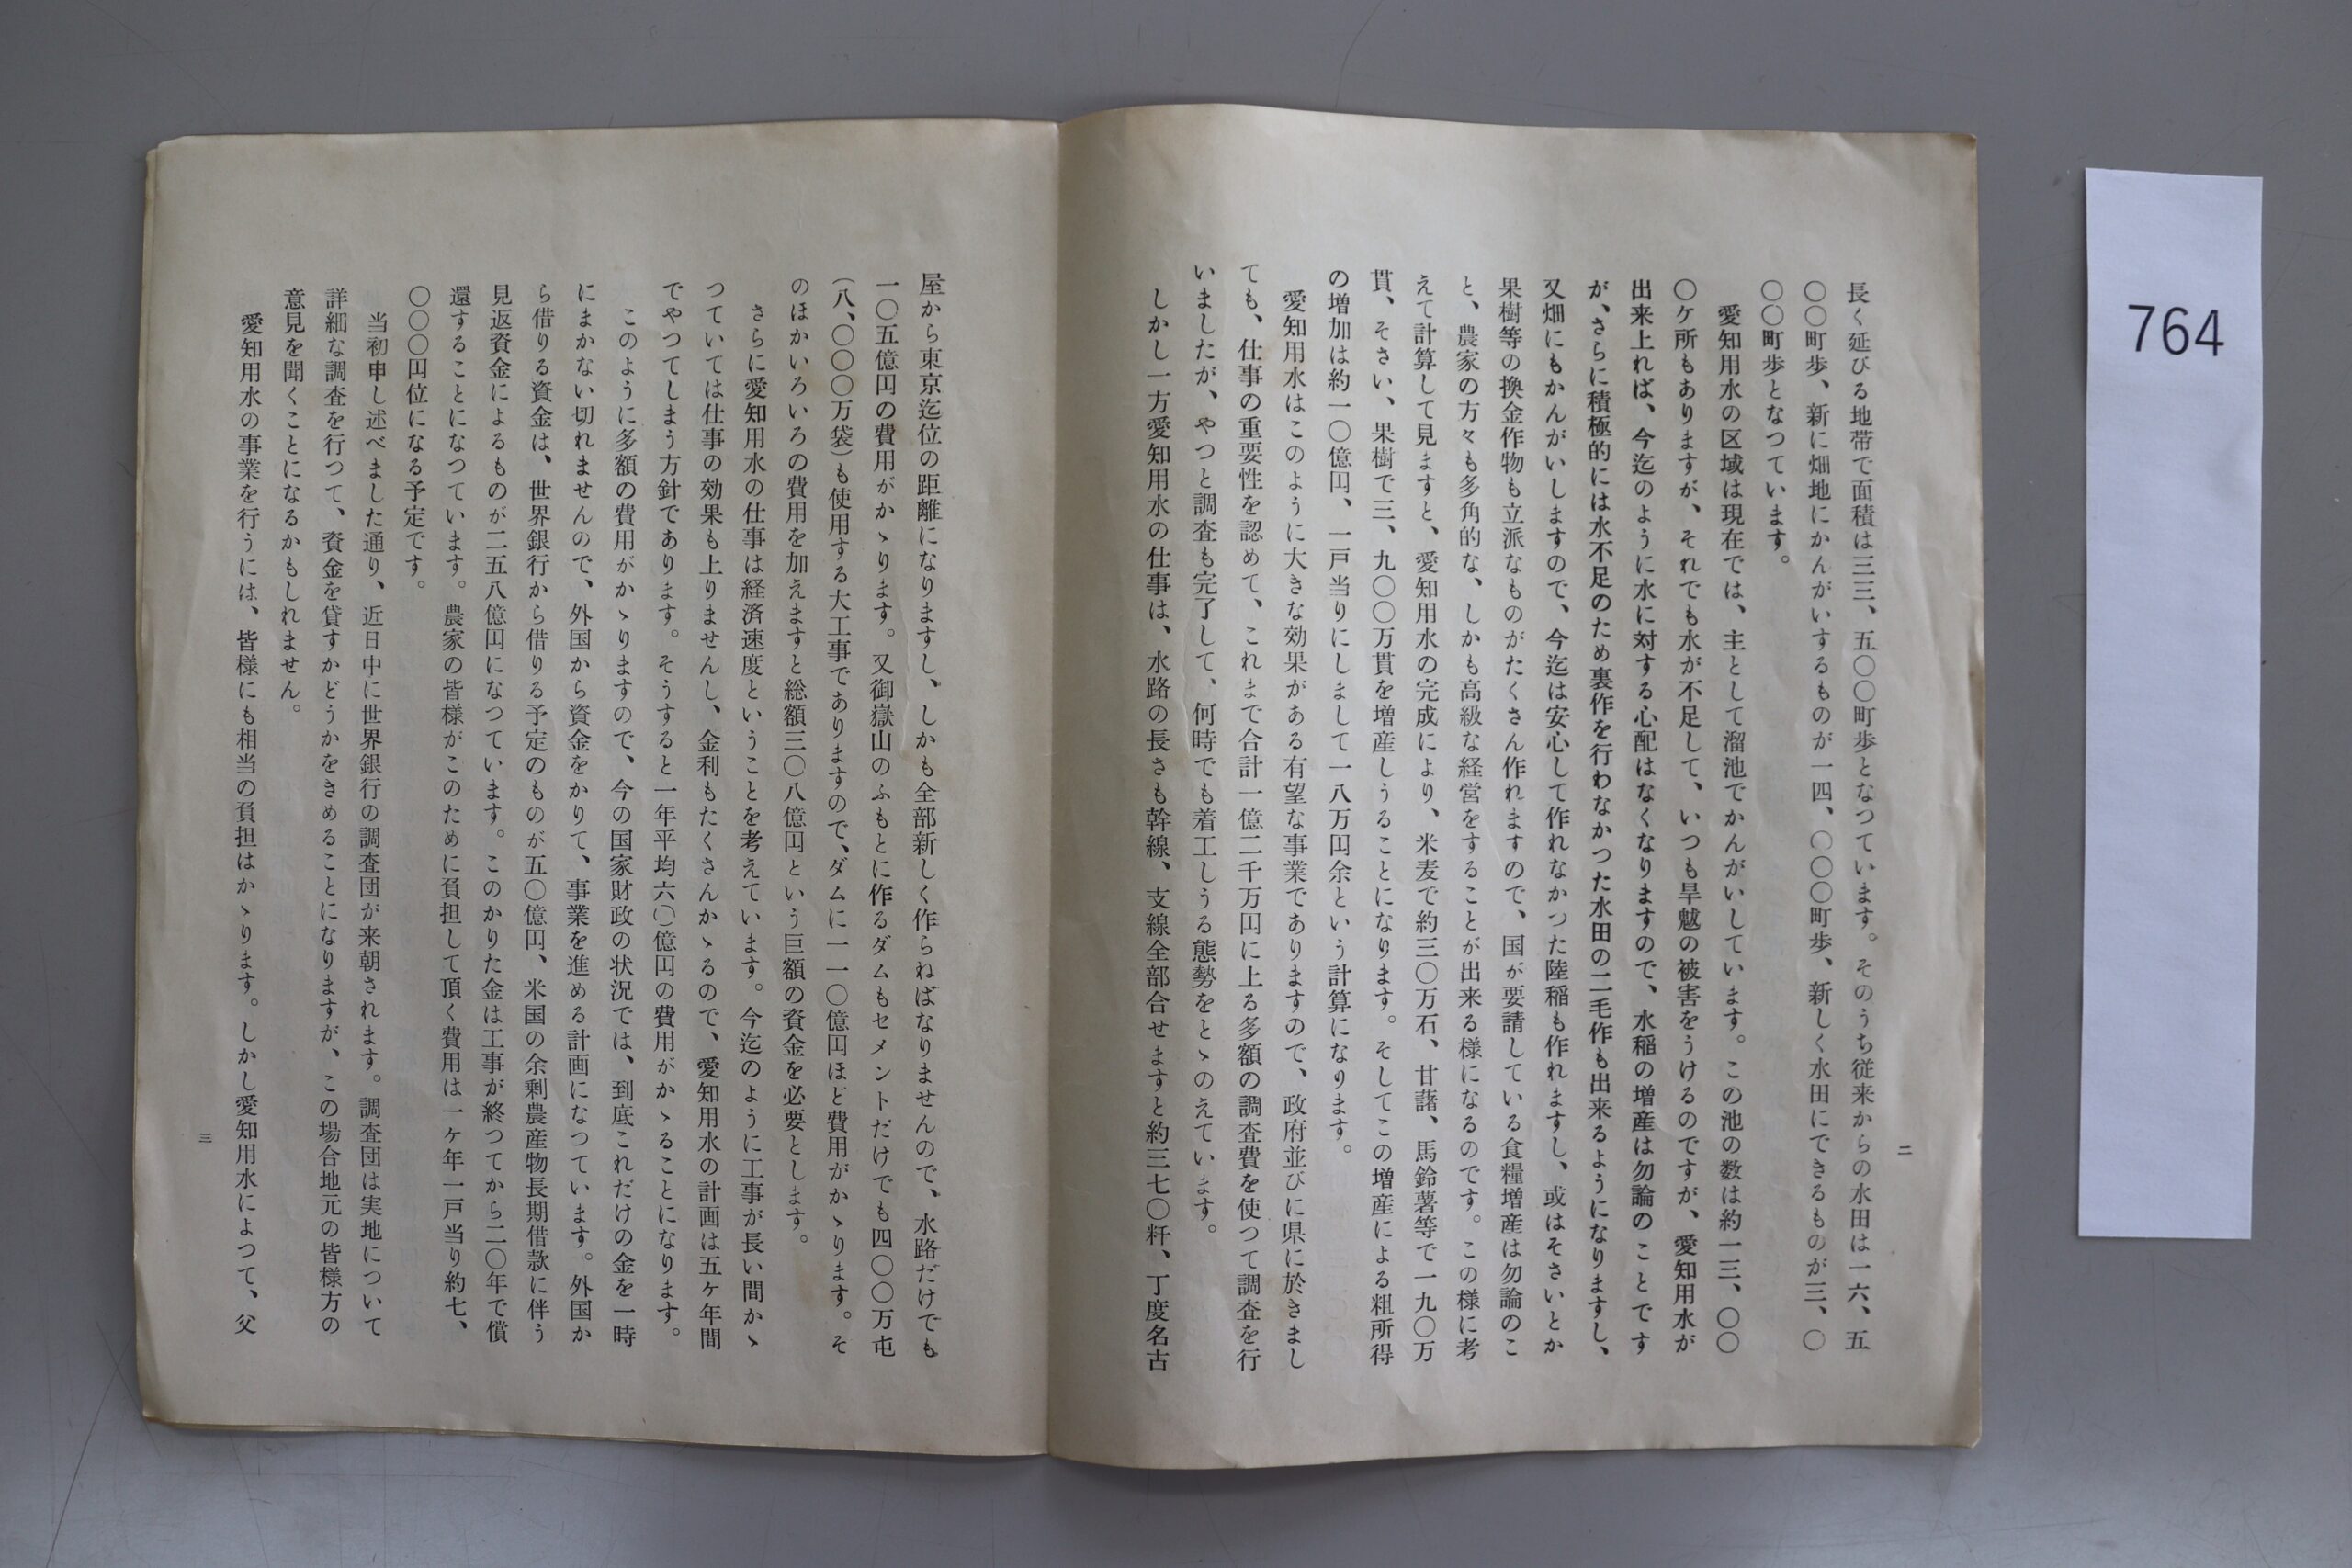 長く延びる地帯で面積は三三、五〇〇町歩となつています。そのうち従来からの水田は一六、五
〇〇町歩、新に畑地にかんがいするものが一四、〇〇〇町歩、新しく水田にできるものが三、〇
〇〇町歩となつています。
愛知用水の区域は現在では、主として溜池でかんがいしています。この池の数は約一三、〇〇
〇ケ所もありますが、それでも水が不足して、いつも旱魃の被害をうけるのですが、愛知用水が
出来上れば、今迄のように水に対する心配はなくなりますので、水稲の増産は勿論のことです
が、さらに積極的には水不足のため裏作を行わなかつた水田の二毛作も出来るようになりますし、
又畑にもかんがいしますので、今迄は安心して作れなかつた陸稲も作れますし、或はそさいとか
果樹等の換金作物も立派なものがたくさん作れますので、国が要請している食糧増産は勿論のこ
と、農家の方々も多角的な、しかも高級な経営をすることが出来る様になるのです。この様に考
えて計算して見ますと、愛知用水の完成により、米麦で約三〇万石、甘藷、馬鈴薯等で一九〇万
貫、そさい、果樹で三、九〇〇万貫を増産しうることになります。そしてこの増産による粗所得
の増加は約一〇億円、一戸当りにしまして一八万円余という計算になります。
愛知用水はこのように大きな効果がある有望な事業でありますので、政府並びに県に於きまし
ても、仕事の重要性を認めて、これまで合計一億二千万円に上る多額の調査費を使つて調査を行
いましたが、やつと調査も完了して、何時でも着工しうる態勢をとゝのえています。
しかし一方愛知用水の仕事は、水路の長さも幹線、支線全部合せますと約三七〇粁、丁度名古
二
屋から東京迄位の距離になりますし、しかも全部新しく作らねばなりませんので、水路だけでも
一〇五億円の費用がかゝります。又御嶽山のふもとに作るダムもセメントだけでも四〇〇万屯
（八、〇〇〇万袋）も使用する大工事でありますので、ダムに一一〇億円ほど費用がかゝります。そ
のほかいろいろの費用を加えますと総額三〇八億円という巨額の資金を必要とします。
さらに愛知用水の仕事は経済速度ということを考えています。今迄のように工事が長い間かゝ
つていては仕事の効果も上りませんし、金利もたくさんかゝるので、愛知用水の計画は五ヶ年間
でやつてしまう方針であります。そうすると一年平均六〇億円の費用がかゝることになります。
このように多額の費用がかゝりますので、今の国家財政の状況では、到底これだけの金を一時
にまかない切れませんので、外国から資金をかりて、事業を進める計画になつています。外国か
ら借りる資金は、世界銀行から借りる予定のものが五〇億円、米国の余剰農産物長期借款に伴う
見返資金によるものが二五八億円になつています。このかりた金は工事が終つてから二〇年で償
還することになつています。農家の皆様がこのために負担して頂く費用は一ヶ年一戸当り約七、
〇〇〇円位になる予定です。
当初申し述べました通り、近日中に世界銀行の調査団が来朝されます。調査団は実地について
詳細な調査を行つて、資金を貸すかどうかをきめることになりますが、この場合地元の皆様方の
意見を聞くことになるかもしれません。
愛知用水の事業を行うには、皆様にも相当の負担はかゝります。しかし愛知用水によつて、父
三
764